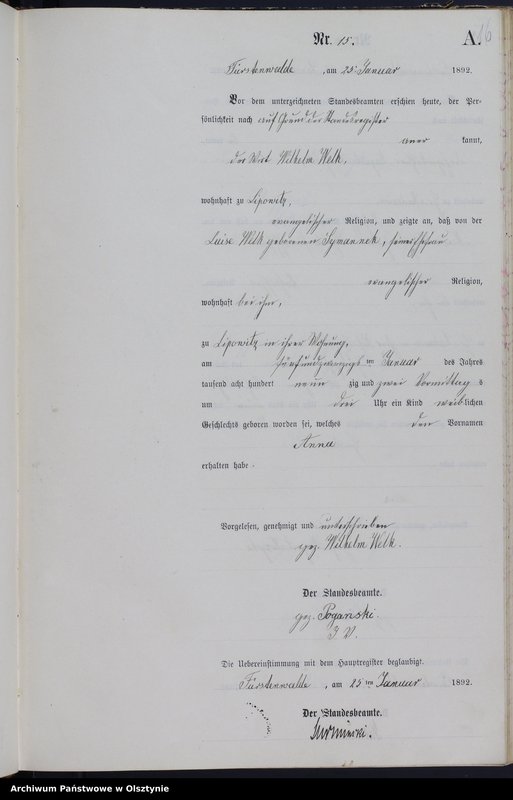 16
Nr. 15.
A.
Fürstenwalde, am 25ten Januar 1892.
Vor dem unterzeichneten Standesbeamten erschien heute, der Per-
sönlichkeit nach auf Grund der Standesregister
aner kannt,
der Wirt Wilhelm Welk,
wohnhaft zu Lipowitz,
evangelischer Religion, und zeigte an, daß von der
Luise Welk geborenen Symannek, seiner Ehefrau
evangelischer Religion,
wohnhaft bei ihm,
zu Lipowitz in ihrer Wohnung,
am fünfundzwanzigsten Januar des Jahres
tausend acht hundert neun zig und zwei Vormittag s
um drei Uhr ein Kind weiblichen
Geschlechts geboren worden sei, welches den Vornamen
Anna
erhalten habe.
Vorgelesen, genehmigt und unterschrieben
gez. Wilhelm Welk.
Der Standesbeamte.
gez. Poganski.
I. V.
Die Uebereinstimmung mit dem Hauptregister beglaubigt.
Fürstenwalde, am 25ten Januar 1892.
Der Standesbeamte.
Archiwum Państwowe w Olsztynie